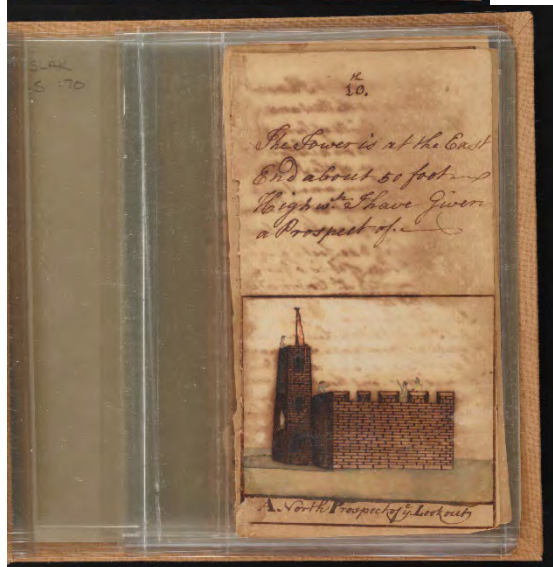 SLAK
S 170
10.
The Tower is at the East
End about 50 foot
High wch I have Given
a Prospect of.
A. North Prospect of ye Lookout